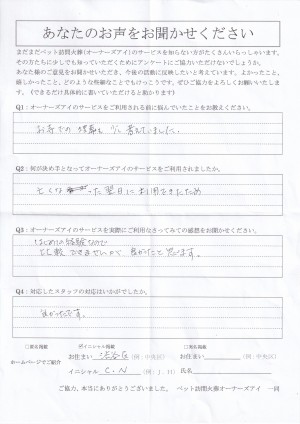 あなたのお声をお聞かせください
まだまだペット訪問火葬(オーナーズアイ)のサービスを知らない方がたくさんいらっしゃいます。
その方たちに少しでも知っていただくためにアンケートにご協力いただけないでしょうか。
あなた様のご意見をお聞かせいただき、今後の活動に反映したいと考えています。よかったこと、
嬉しかったこと、どのような些細なことでもけっこうです。ぜひご感想などよろしくお願いいたしま
す。(できるだけ具体的に書いていただけると助かります)
Q1:オーナーズアイのサービスをご利用される前に悩んでいたことをお教えください。
お寺での
考えていました。
Q2:何が決め手となってオーナーズアイのサービスをご利用されましたか。
亡くなった翌日に利用できたため
Q3:オーナーズアイのサービスを実際にご利用なさってみての感想をお聞かせください。
はじめての経験なので
比較できませんが、良かったと思います。
Q4:対応したスタッフの対応はいかがでしたか。
良かったです。
□匿名掲載 ☑イニシャル掲載 □実名掲載
ホームページでご紹介
お住まい 渋谷区 (例:中央区) お住まい (例:中央区)
イニシャル C.N (例:J.H) 氏名
ご協力、本当にありがとうございました。 ペット訪問火葬オーナーズアイ 一同